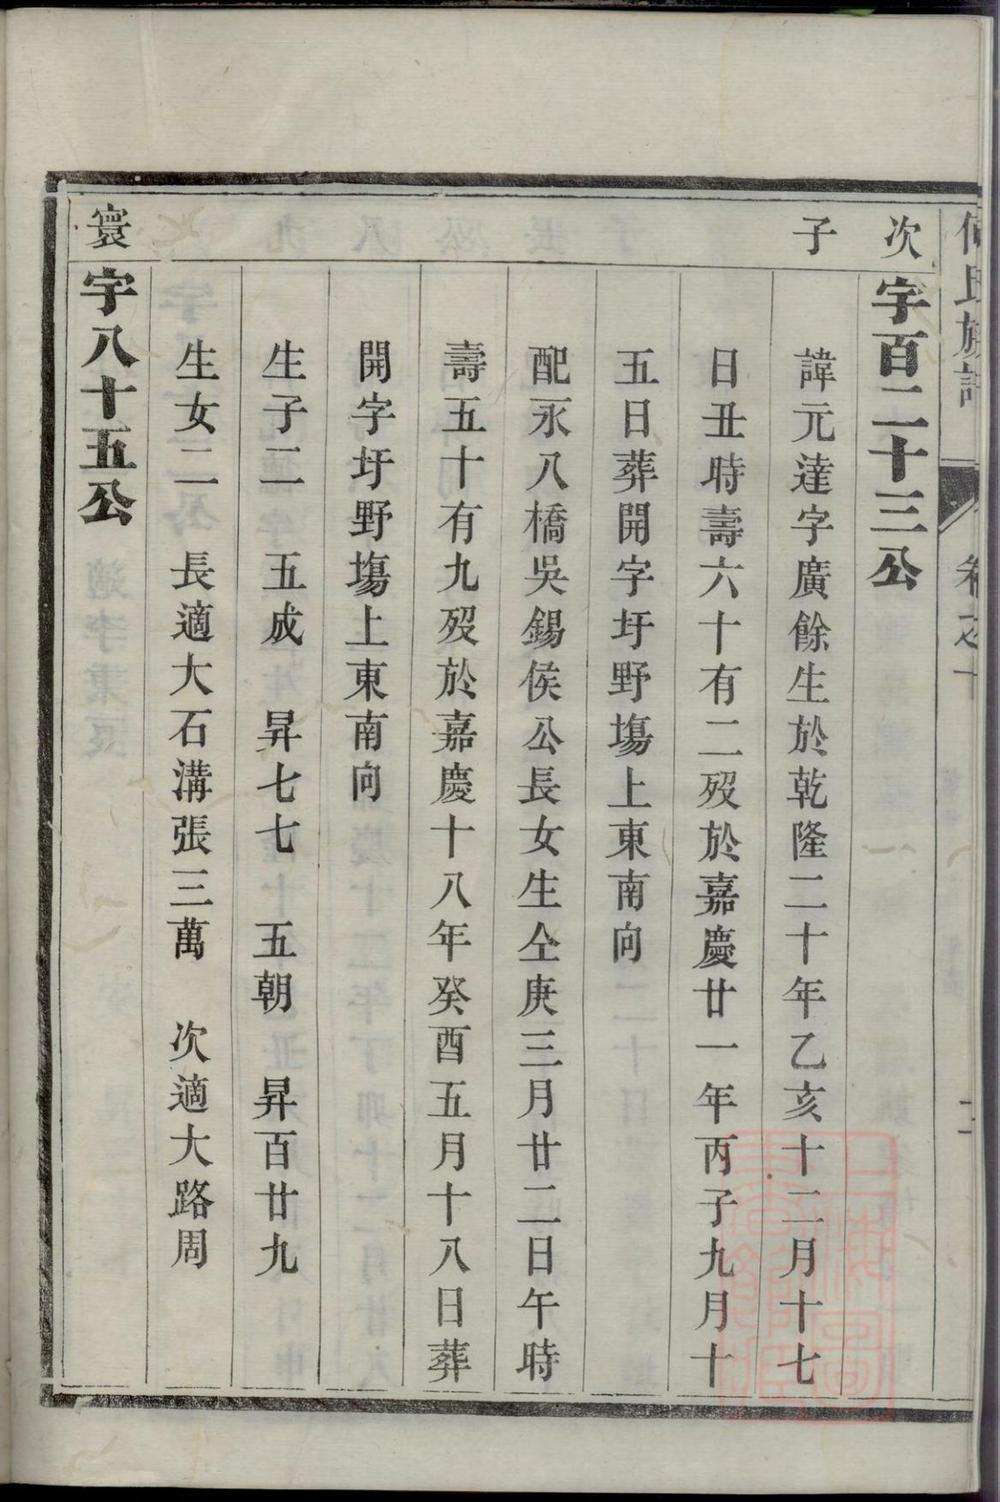 何氏族譜 卷之十 二
次 字百二十三公
子 諱元達字廣餘生於乾隆二十年乙亥十二月十七
日丑時壽六十有二歿於嘉慶廿一年丙子九月十
五日葬開字圩野塲上東南向
配永八橋吳錫侯公長女生仝庚三月廿二日午時
壽五十有九歿於嘉慶十八年癸酉五月十八日葬
開字圩野塲上東南向
生子二 五成 昇七七 五朝 昇百廿九
生女二 長適大石溝張三萬 次適大路周
寰 字八十五公